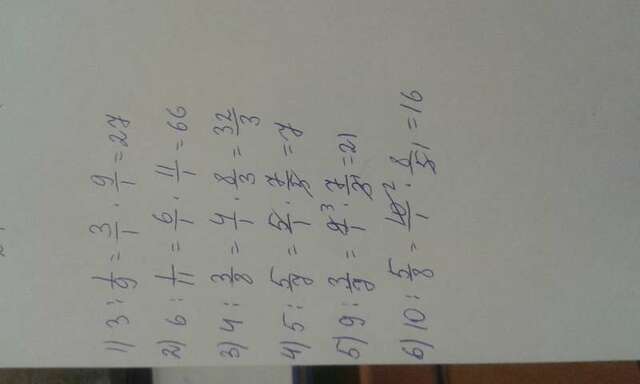 1) 3 : 1/9 = 3/1 · 9/1 = 27
2) 6 : 1/11 = 6/1 · 11/1 = 66
3) 4 : 3/8 = 4/1 · 8/3 = 32/3
4) 5 : 5/7 = 5/1 · 7/5 = 7
5) 9 : 3/7 = 9³/1 · 7/3₁ = 21
6) 10 : 5/8 = 10²/1 · 8/5₁ = 16